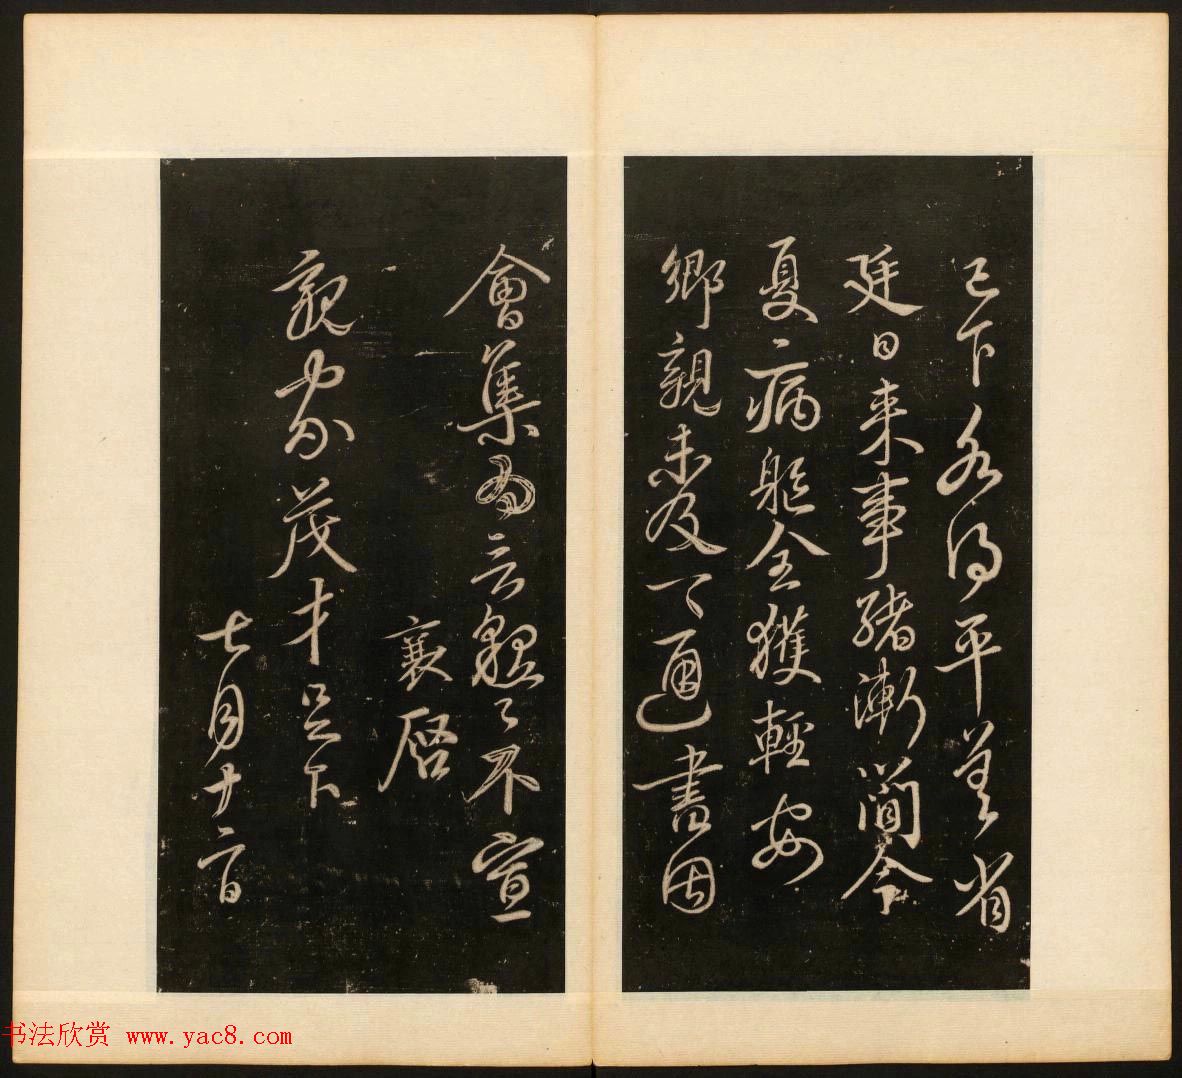 已下各得平善省
廷日来事绪漸簡今
夏病躯全獲輕安
鄉親未及一一通書因
會集為言懇懇不宣
襄啓
親家茂才足下
七月十二日
书法欣赏 www.yac8.com